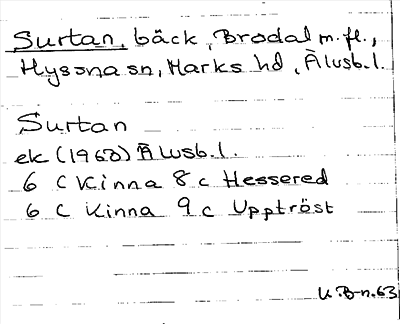 Surtan, bäck, Brodal m. fl.,
Hyssna sn, Marks hd, Älvsb. l.
Surtan
ek (1968) Älvsb. l.
6 C Kinna 8 c Hessered
6 C Kinna 9 c Upptröst
U. B-n. 63